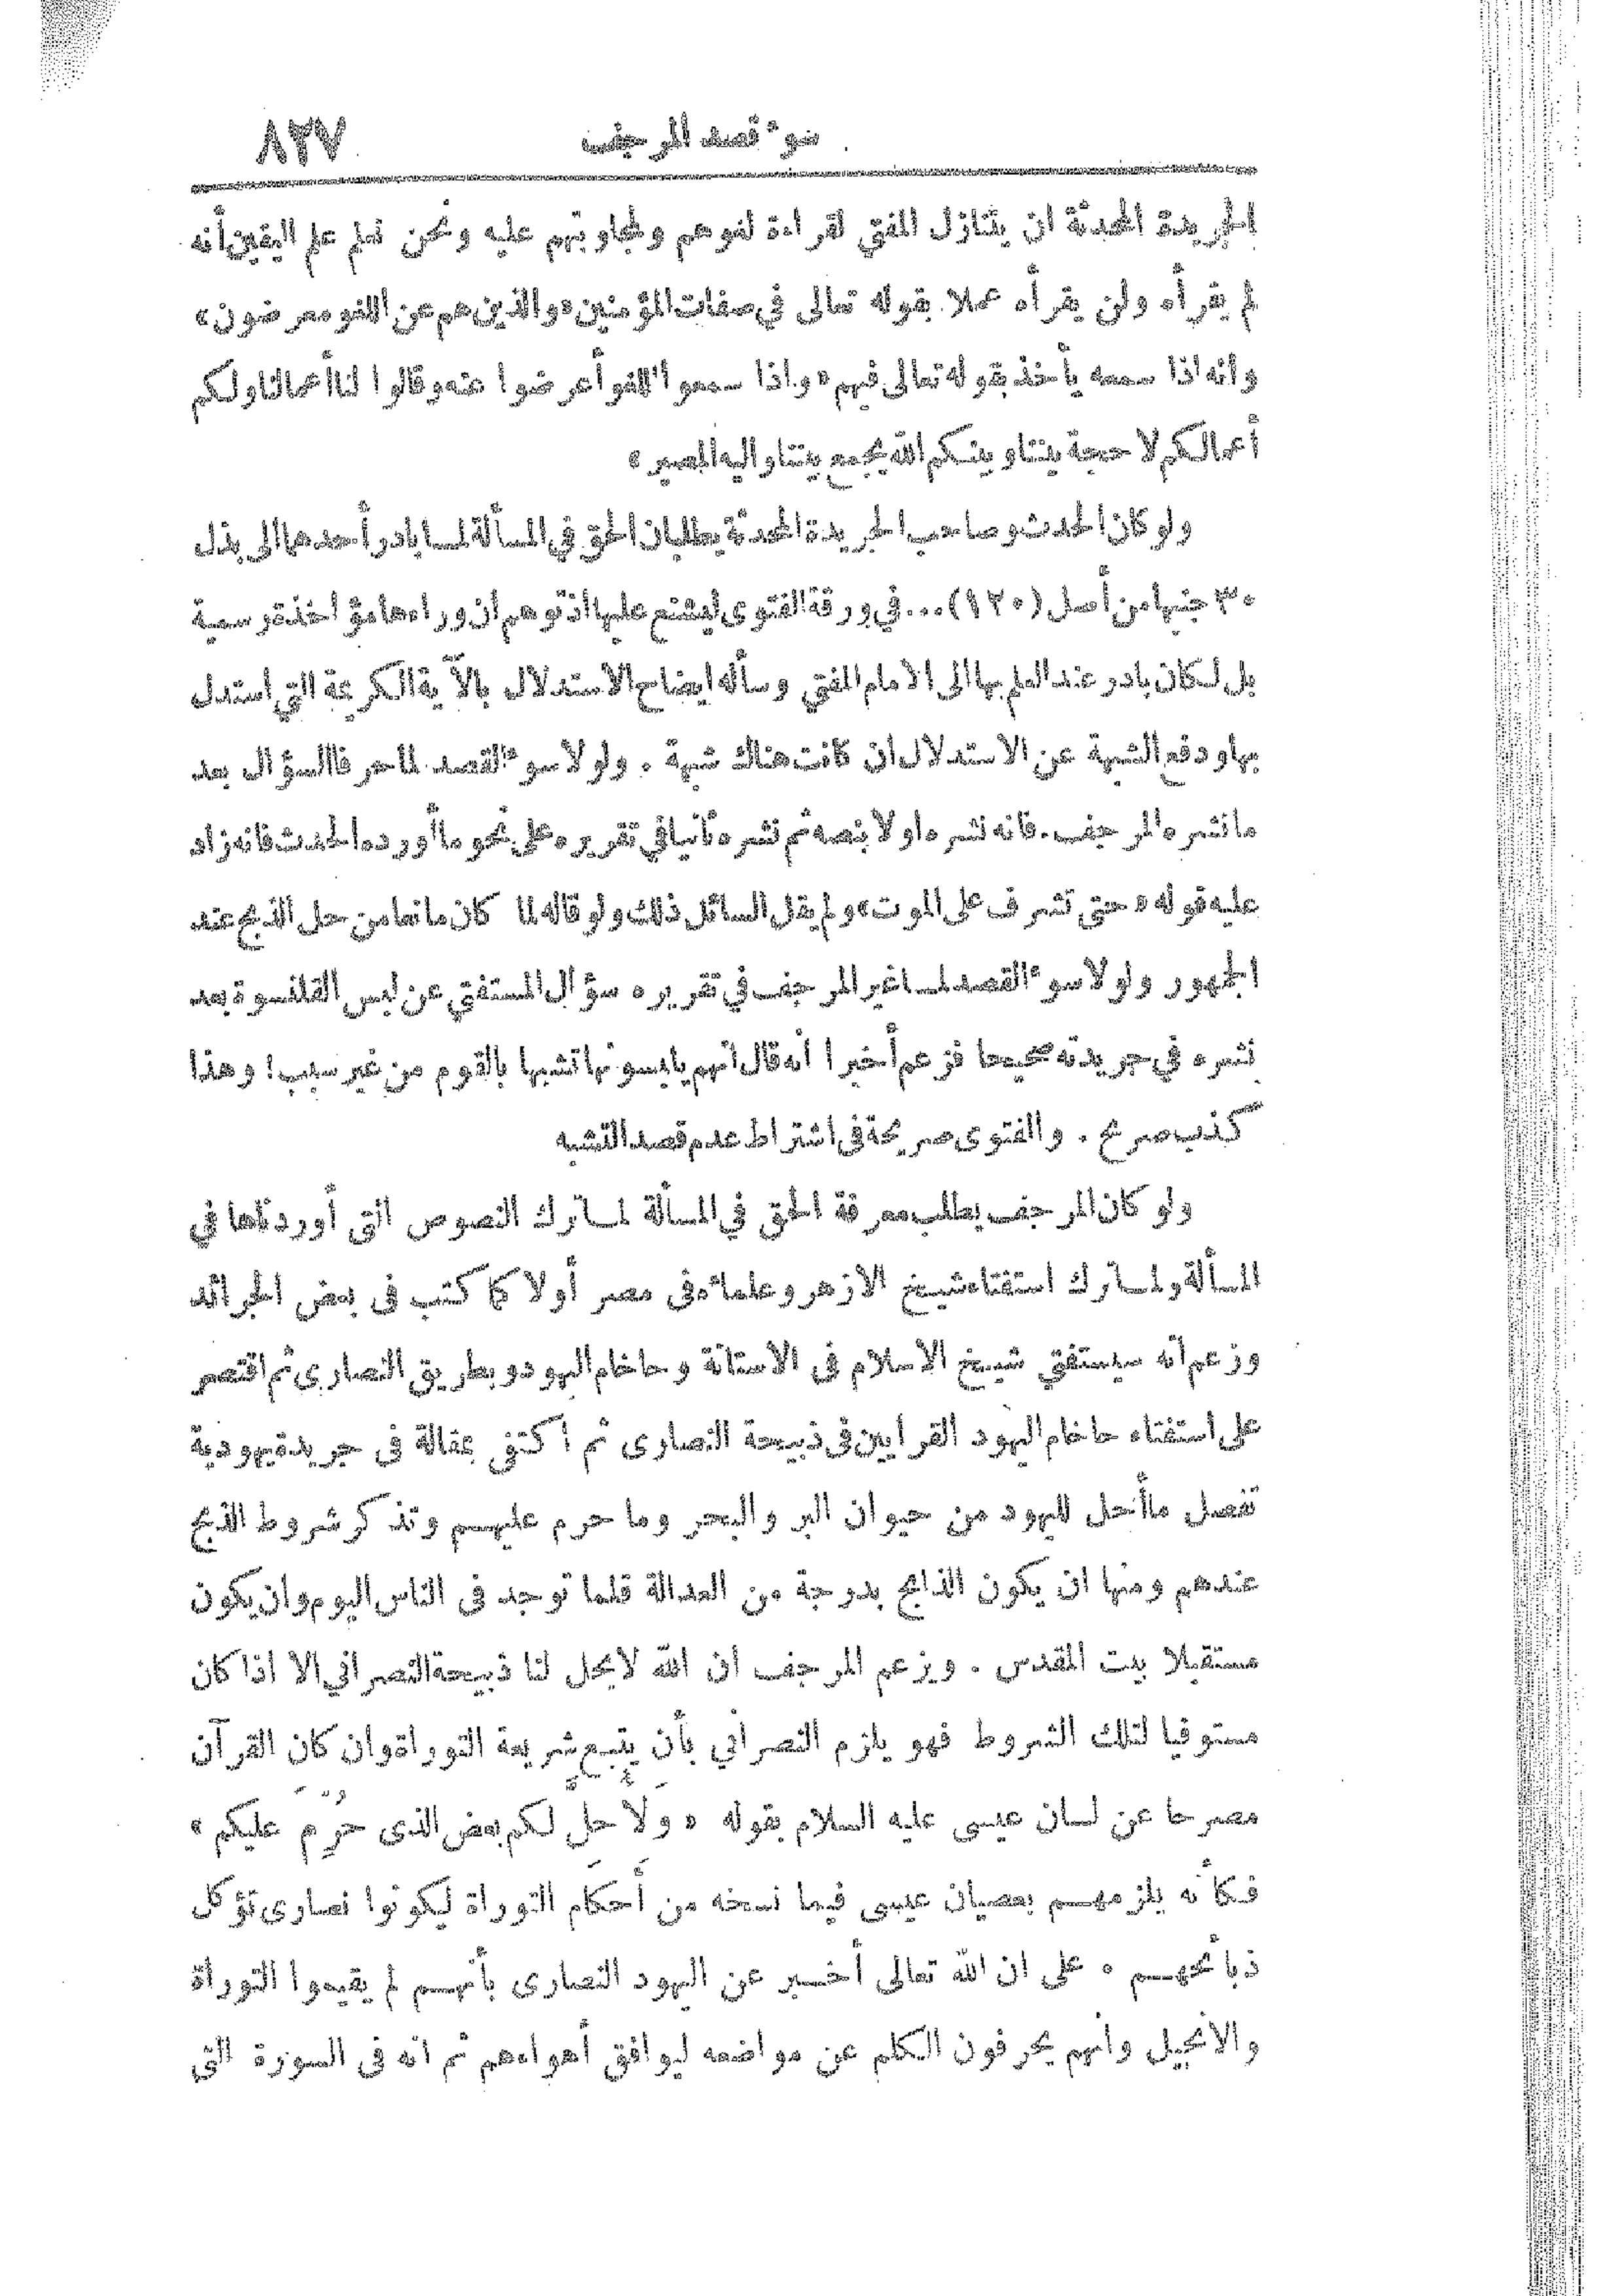 سوء قصد المرجف ٨٣٧
الجريدة المحدثة ان يتنازل المفتي لقراءة لغوهم ولمجاوبتهم عليه ونحن نعلم علم اليقين أنه
لم يقرأه ولن يقرأه عملا بقوله تعالى في صفات المؤمنين «والذين هم عن اللغو معرضون»
وانه اذا سمعه يأخذ بقوله تعالى فيهم «واذا سمعوا اللغو أعرضوا عنه وقالوا لنا أعمالنا ولكم
أعمالكم لا حجة بيننا وبينكم الله يجمع بيننا واليه المصير»
ولو كان المحدث وصاحب الجريدة المحدثة يطلبان الحق في المسألة لما بادر أحدهما الى بذل
٣٠ جنيها من أصل (١٢٠)... في ورقة الفتوى ليشنع عليها اذ توهم ان وراءها مؤاخذة رسمية
بل لكان بادر عند العلم بها الى الامام المفتي وسأله ايضاح الاستدلال بالآية الكريمة التي استدل
بها ودفع الشبهة عن الاستدلال ان كانت هناك شبهة . ولولا سوء القصد لما حرفا السؤال بعد
ما نشره المرجف . فانه نشره اولا بنصه ثم نشره ثانيا في تقريره على نحو ما أورده المحدث فانه زاد
عليه قوله «حتى تشرف على الموت» ولم يقل السائل ذلك ولو قاله لما كان مانعا من حل الذبح عند
الجمهور ولولا سوء القصد لما غير المرجف في تقريره سؤال المستفتي عن لبس القلنسوة بعد
نشره في جريدته صحيحا فزعم أخيرا أنه قال انهم يلبسونها تشبها بالقوم من غير سبب! وهذا
كذب صريح . والفتوى صريحة في اشتراط عدم قصد التشبه
ولو كان المرجف يطلب معرفة الحق في المسألة لما ترك النصوص التي أوردناها في
المسألة ولما ترك استفتاء شيخ الازهر وعلمائه في مصر أولا كما كتب في بعض الجرائد
وزعم انه سيستفتي شيخ الاسلام في الاستانة وحاخام اليهود وبطريق النصارى ثم اقتصر
على استفتاء حاخام اليهود القرايين في ذبيحة النصارى ثم اكتفى بمقالة في جريدة يهودية
تفصل ما أحل لليهود من حيوان البر والبحر وما حرم عليهم وتذكر شروط الذبح
عندهم ومنها ان يكون الذابح بدرجة من العدالة قلما توجد في الناس اليوم وان يكون
مستقبلا بيت المقدس . ويزعم المرجف ان الله لا يحل لنا ذبيحة النصراني الا اذا كان
مستوفيا لتلك الشروط فهو يلزم النصراني بأن يتبع شريعة التوراة وان كان القرآن
مصرحا عن لسان عيسى عليه السلام بقوله «وَلِأُحِلَّ لكم بعض الذي حُرِّمَ عليكم»
فكأنه يلزمهم بعصيان عيسى فيما نسخه من أحكام التوراة ليكونوا نصارى تؤكل
ذبائحهم . على ان الله تعالى أخبر عن اليهود النصارى بأنهم لم يقيموا التوراة
والانجيل وانهم يحرفون الكلم عن مواضعه ليوافق أهواءهم ثم انه في السورة التي